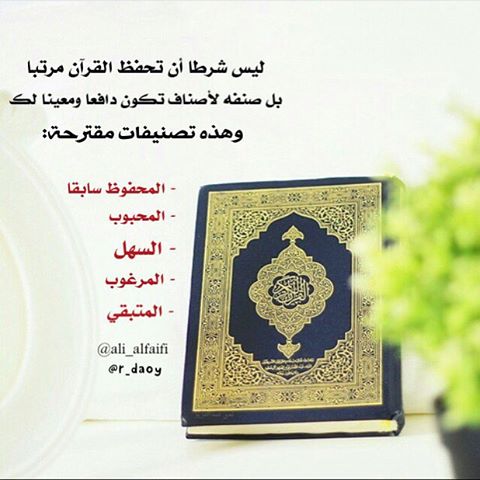 ليس شرطا أن تحفظ القرآن مرتبا
بل صنفه لأصناف تكون دافعا ومعينا لك
وهذه تصنيفات مقترحة:
- المحفوظ سابقا
- المحبوب
- السهل
- المرغوب
- المتبقي
@ali_alfaifi
@r_daoy
القرآن الكريم